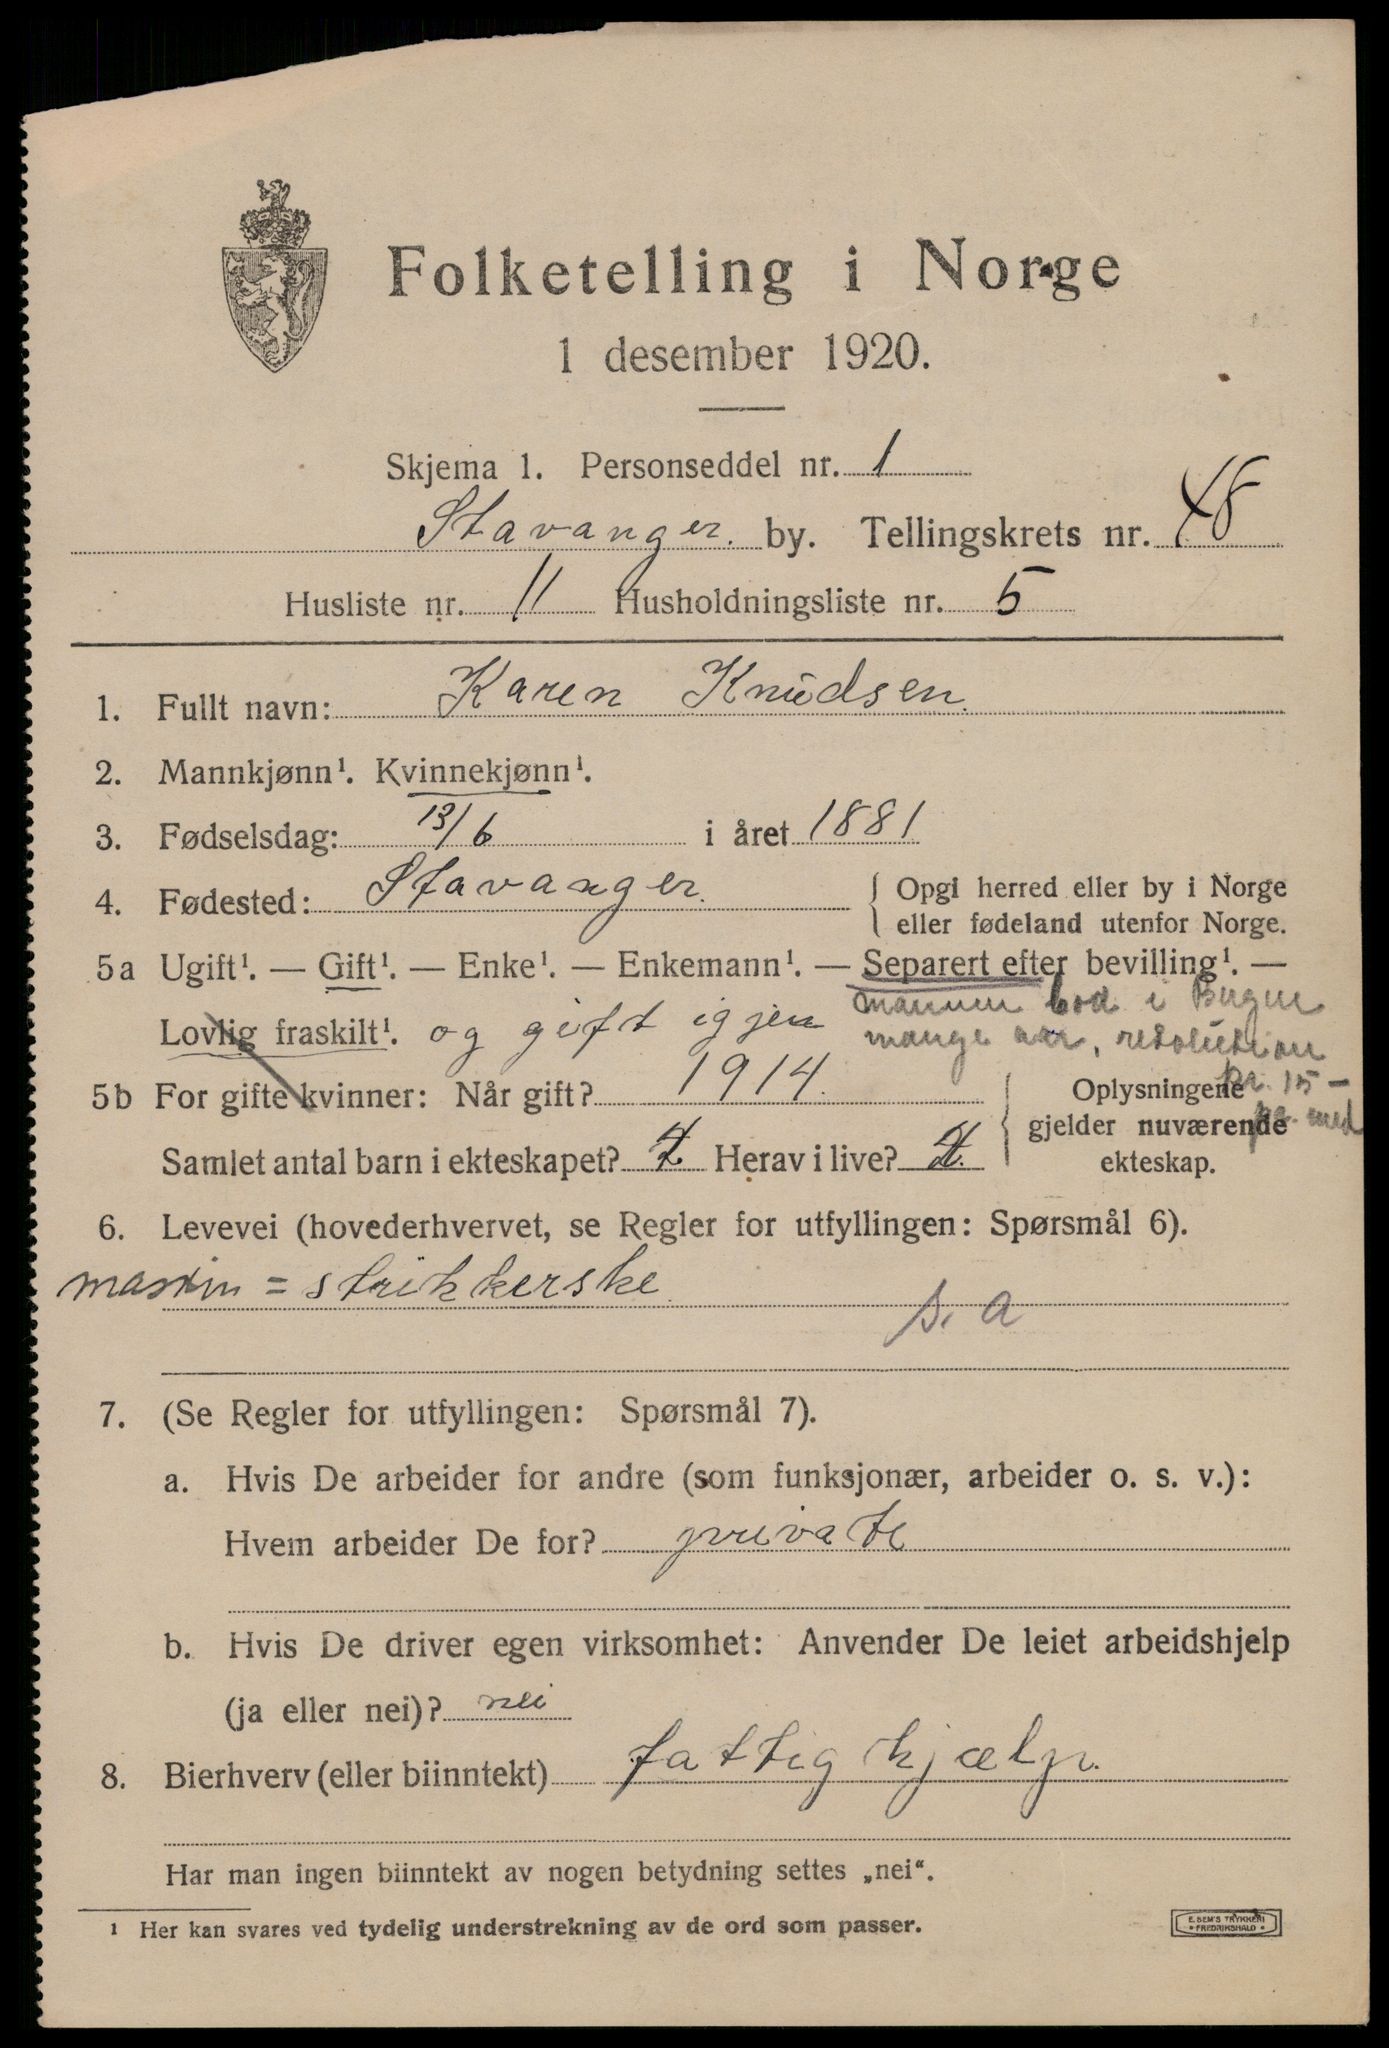 Folketelling i Norge
1 desember 1920.
Skjema 1. Personseddel nr. 1
Stavanger. by. Tellingskrets nr. 48
Husliste nr. 11 Husholdningsliste nr. 5
1. Fullt navn: Karen Knudsen.
2. Mannkjønn¹. Kvinnekjønn¹.
3. Fødselsdag: 13/6 i året 1881
4. Fødested: Stavanger. { Opgi herred eller by i Norge
eller fødeland utenfor Norge.
5a Ugift¹. — Gift¹. — Enke¹. — Enkemann¹. — Separert efter bevilling¹. —
Lovlig fraskilt¹. og gift igjen
mannen bod i Bergen
mange aar, resolution
kr. 15 –
pr. med
5b For gifte kvinner: Når gift? 1914.
Samlet antal barn i ekteskapet? Herav i live?
Oplysningene
gjelder nuværende
ekteskap.
6. Levevei (hovederhvervet, se Regler for utfyllingen: Spørsmål 6).
maskin = strikkerske
s. a
7. (Se Regler for utfyllingen: Spørsmål 7).
a. Hvis De arbeider for andre (som funksjonær, arbeider o. s. v.):
Hvem arbeider De for? private
b. Hvis De driver egen virksomhet: Anvender De leiet arbeidshjelp
(ja eller nei)? nei
8. Bierhverv (eller biinntekt) fattig hjælp.
Har man ingen biinntekt av nogen betydning settes „nei“.
¹ Her kan svares ved tydelig understrekning av de ord som passer.
E. SEM'S TRYKKERI
• FREDRIKSHALD •